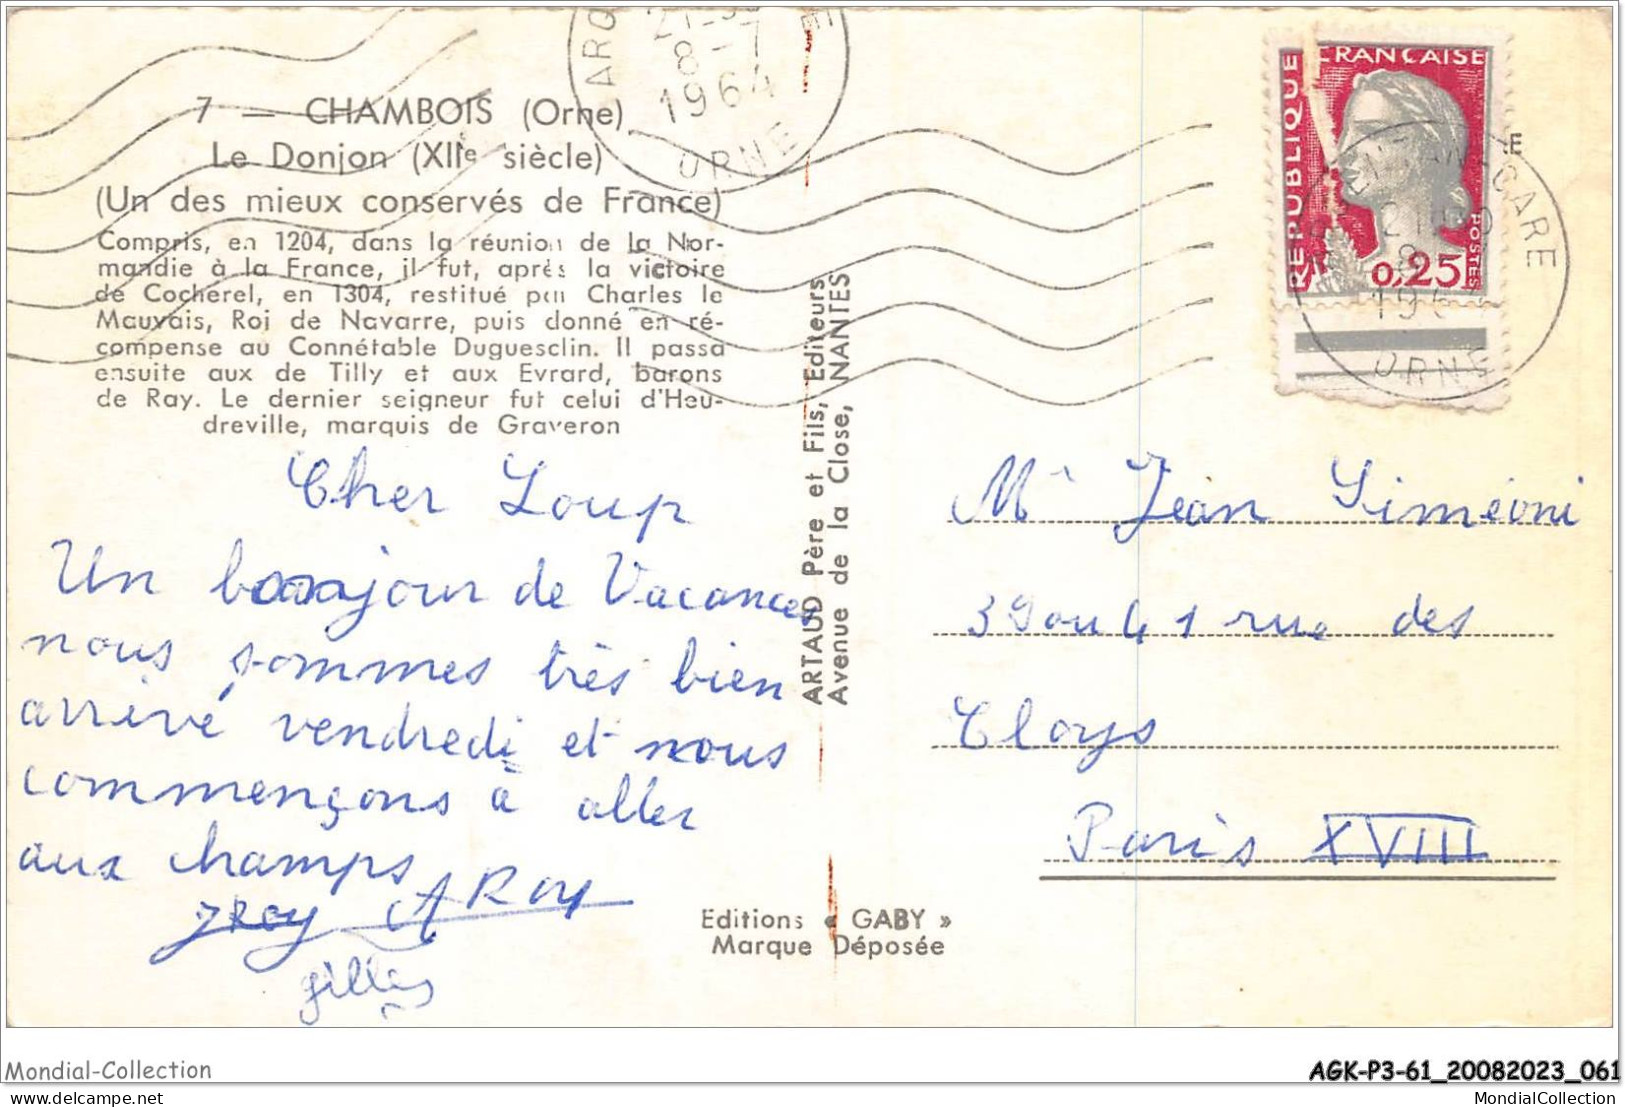 7 — CHAMBOIS (Orne)
Le Donjon (XIIe siècle)
(Un des mieux conservés de France)
Compris, en 1204, dans la réunion de la Nor-
mandie à la France, il fut, après la victoire
de Cocherel, en 1304, restitué par Charles le
Mauvais, Roi de Navarre, puis donné en ré-
compense au Connétable Duguesclin. Il passa
ensuite aux de Tilly et aux Evrard, barons
de Ray. Le dernier seigneur fut celui d'Heu-
dreville, marquis de Graveron
Cher Loup
Un bonjour de Vacances
nous sommes très bien
arrivé vendredi et nous
commençons à aller
aux champs
JRoy A Roy
gilles
ARTAUD Père et Fils, Editeurs
Avenue de la Close, NANTES
Editions « GABY »
Marque Déposée
8-7
1964
ORNE
REPUBLIQUE FRANCAISE
POSTES
0,25
GARE
ORNE
Mr Jean Siméoni
39 ou 41 rue des
Cloys
Paris XVIII
Mondial-Collection
AGK-P3-61_20082023_061
delcampe.net
MondialCollection